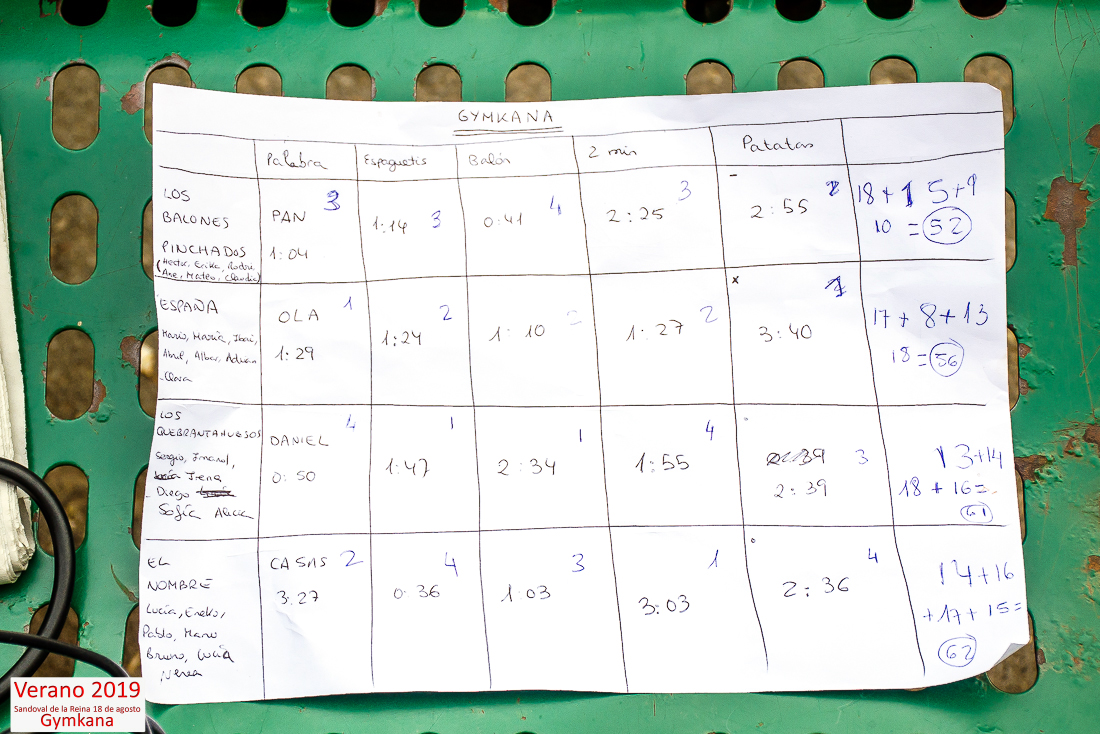 GYMKANA
Palabra Espaguetis Balón 2 min Patatas
LOS
BALONES
PINCHADOS
(Hector, Erika, Rodri,
Ane, Mateo, Claudia)
PAN 3
1:04
1:14 3
0:41 4
2:25 3
2:55
18 + 15 + 9
10 = 52
ESPAÑA
Mario, María,
Abril, Alba, Adrian
Clara
OLA 1
1:29
1:24 2
1:10 2
1:27 2
x
3:40 1
17 + 8 + 13
18 = 56
LOS
QUEBRANTAHUESOS
Sergio, Imanol,
Irena
Diego
Sofía Alicia
DANIEL 4
0:50
1:47 1
2:34 1
1:55 4
2:39 3
2:39
13 + 14
18 + 16 =
61
EL
NOMBRE
Lucía, Eneko,
Pablo, Manu
Bruno, Lucía
Nerea
CASAS 2
3:27
0:36 4
1:03 3
3:03 1
2:36 4
14 + 16
+ 17 + 15 =
62
Verano 2019
Sandoval de la Reina 18 de agosto
Gymkana